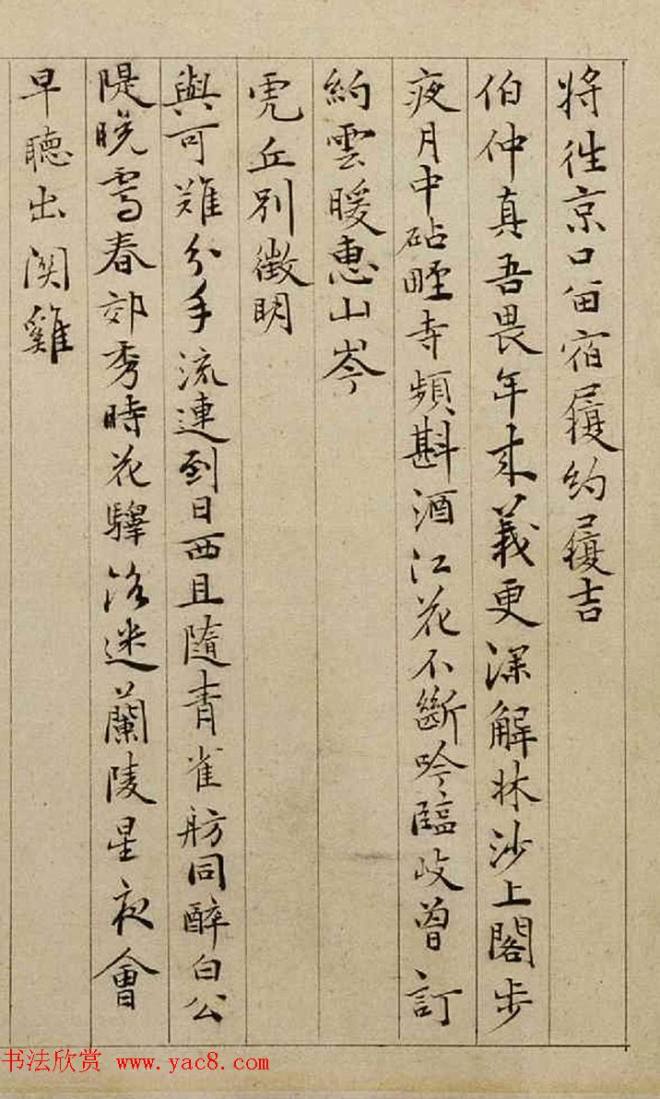 將往京口留宿履約履吉
伯仲真吾畏年來義更深解牀沙上閣步
夜月中砧畦寺頻斟酒江花不斷吟臨岐曾訂
約雲暖惠山岑
虎丘別徵明
與可難分手流連到日西且隨青雀舫同醉白公
隄晚靄春郊秀時花驛路迷蘭陵星夜會
早聽出関雞
书法欣赏 www.yac8.com